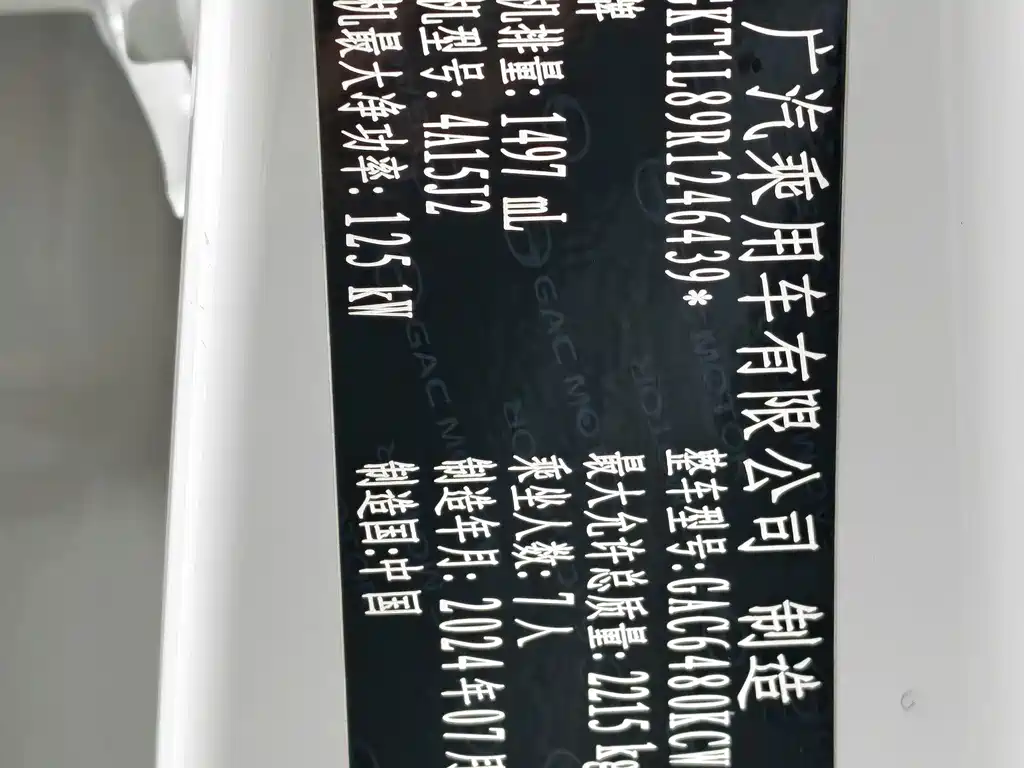 广汽乘用车有限公司 制造
GKT1L89R1246439*
整车型号:GAC6480KCW
牌
最大允许总质量:2215kg
机排量:1497 mL
乘坐人数:7人
机型号:4A15J2
制造年月:2024年07月
机最大净功率:125kW
制造国:中国
GAC MO
GAC M
MOTOR